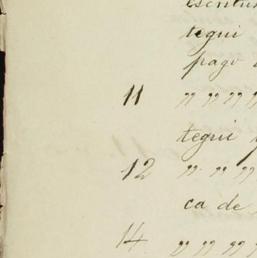 tegui
pago
11 " " " "
tegui
12 " " " "
ca de
14 " " " "